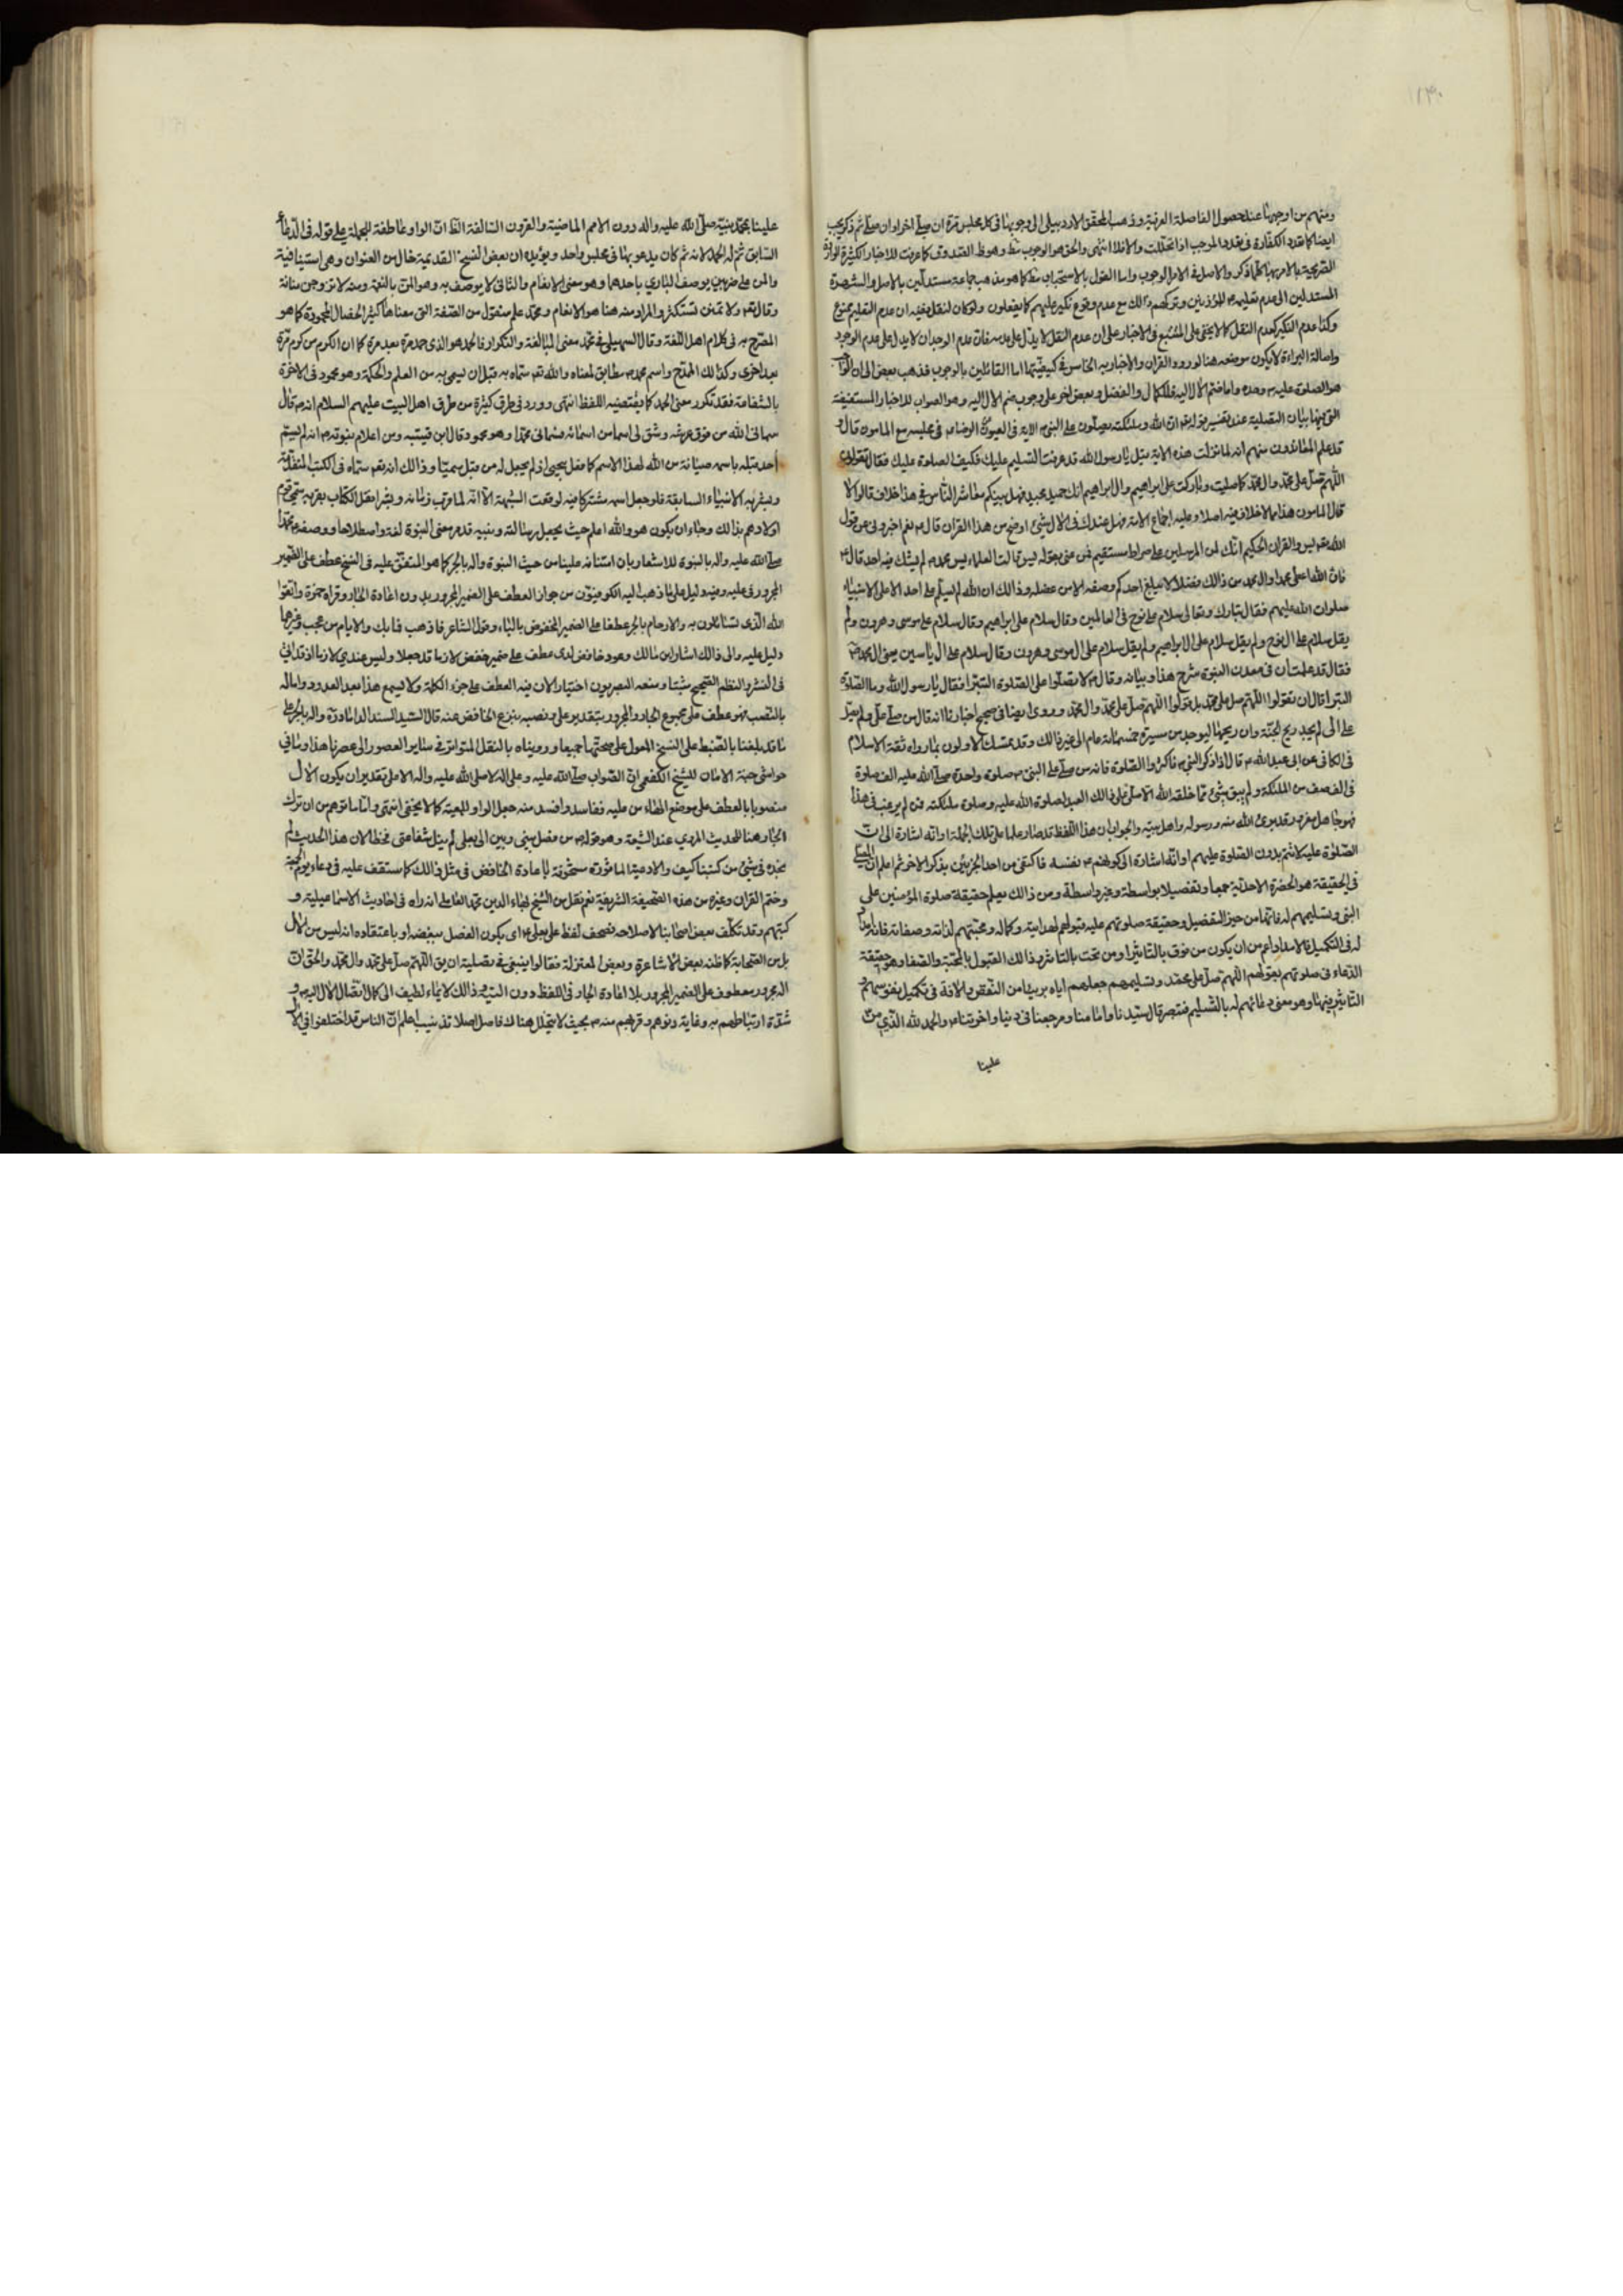 ١٣٠
ومنهم من اوجبها عند حصول الفاصلة العرفية وذهب المحقق الاردبيلى الى وجوبها فى كل مجلس مرة ان صلى اخرا وان صلى ثم ذكر يجب
ايضا كما تعدد الكفارة فى تعدد الموجب اذا تخللت والا فلا انتهى والحق هو الوجوب وهو الصدوق كما عرفت للاخبار الكثيرة
الصريحة بالامر بها كلما ذكر والاصل فى الامر الوجوب واما القول بالاستحباب كما هو مذهب جماعة مستدلين بالاصل والشهرة
المستدلين الى عدم تعليمه المؤذنين وتركهم ذالك مع عدم وقوع نكير عليهم كما يفعلون ولو كان لنقل ففيه ان عدم التعليم ممنوع
وكذا عدم النكير كعدم النقل كما لا يخفى على المتتبع فى الاخبار على ان عدم النقل لا يدل على عدمه فان عدم الوجدان لا يدل على عدم الوجود
واصالة البراءة لا يكون موضعه هنا لورود القران والاخبار به الخامس فى كيفيتها اما القائلين بالوجوب فذهب بعض الى ان
هو الصلوة عليه وحده واما ضم الال اليه فللكمال والفضل وبعض اخر على وجوب ضم الال اليه وهو الصواب للاخبار المستفيضة
التى فيها بيان التصلية عند تفسير قوله ان الله وملئكته يصلون على النبى الاية فى العيون الرضا فى مجلسه مع المامون قال و
قد علم المعاندون منهم انه لما نزلت هذه الاية قيل يا رسول الله قد عرفنا التسليم عليك فكيف الصلوة عليك فقال تقولون
اللهم صل على محمد وال محمد كما صليت وباركت على ابراهيم وال ابراهيم انك حميد مجيد فهل بينكم معاشر الناس فى هذا خلاف قالوا لا
قال المامون هذا مما لا خلاف فيه اصلا وعليه اجماع الامة فهل عندك فى الال شىء اوضح من هذا القران قال نعم اخبرونى عن قول
الله يس والقران الحكيم انك لمن المرسلين على صراط مستقيم فمن عنى بقوله يس قالت العلماء يس محمد لم يشك فيه احد قال
فان الله اعطى محمدا وال محمد من ذالك فضلا لا يبلغ احد كم وصفه الا من عقله وذالك ان الله لم يسلم على احد الا على الانبياء
صلوات الله عليهم فقال تبارك وتعالى سلام على نوح فى العالمين وقال سلام على ابراهيم وقال سلام على موسى وهرون ولم
يقل سلام على ال نوح ولم يقل سلام على ال ابراهيم ولم يقل سلام على ال موسى وهرون وقال سلام على ال ياسين يعنى ال محمد
فقال قد علمت ان فى معدن النبوة شرح هذا وبيانه وقال لا تصلوا على الصلوة البترا فقال يا رسول الله وما الصلوة
البترا قال ان تقولوا اللهم صل على محمد بل قولوا اللهم صل على محمد وال محمد وروى ايضا فى صحيح اخبارنا انه قال من صلى على ولم يصل
على الى لم يجد ريح الجنة وان ريحها ليوجد من مسيرة خمسمائة عام الى غير ذالك وقد تمسك الاولون بما رواه ثقة الاسلام
فى الكافى عن ابى عبد الله قال اذا ذكر النبى فاكثروا الصلوة فانه من صلى على النبى صلوة واحدة صلى الله عليه الف صلوة
فى الف صف من الملئكة ولم يبق شىء مما خلقه الله الا صلى على ذالك العبد لصلوة الله عليه وصلوة ملئكته فمن لم يرغب فى هذا
فهو جاهل مغرور قد برئ الله منه ورسوله واهل بيته والجواب ان هذا اللفظ قد صار علما على تلك الجملة او انه اشارة الى ان
الصلوة عليه لا تتم بدون الصلوة عليهم او انه اشارة الى كونهم نفسه فاكتفى من احد الجزئين بذكر الاخر ثم اعلم ان المصلى
فى الحقيقة هو الحضرة الاحدية جمعا وتفصيلا بواسطة وغير واسطة ومن ذالك يعلم حقيقة صلوة المؤمنين على
النبى وتسليمهم له فانها من حيز التفصيل وحقيقة صلوتهم عليه قبولهم لهدايته وكماله ومحبتهم لذاته وصفاته فانه
له فى التكميل فالامداد اعم من ان يكون من فوق بالتاثير او من تحت بالتاثر وذالك القبول بالمحبة والصفاء وهو حقيقة
الدعاء فى صلوتهم بقولهم اللهم صل على محمد وتسليمهم جعلهم اياه بريئا من النقص والافة فى تكميل نفوسهم و
التاثير فيها وهو معنى دعائهم له بالتسليم فتبصر قال سيدنا وامامنا ومرجعنا فى دنيانا واخرتنا والحمد لله الذى من
علينا
علينا بمحمد نبيه صلى الله عليه واله دون الامم الماضية والقرون السالفة الظ ان الواو عاطفة للجملة على قوله فى الدعاء
السابق ثم له الحمد لانه ثم كان يدعو بها فى مجلس واحد ويؤيده ان بعض النسخ القديمة خال من العنوان وهى استينافية
والمن على ضربين يوصف البارى باحدهما وهو معنى الانعام والثانى لا يوصف به وهو المن بالنعمة ومنه لا تزوجن منانة
وقال تعه ولا تمنن تستكثر والمراد منه هنا هو الانعام ومحمد علم منقول من الصفة التى معناها كثير الخصال المحمودة كما هو
المصرح به فى كلام اهل اللغة وقال السهيلى فى محمد معنى المبالغة والتكرار فالمحمد هو الذى حمد مرة بعد مرة كما ان المكرم من كرم مرة
بعد اخرى وكذالك الممدح واسم محمد مطابق لمعناه والله تعه سماه به قبل ان يسمى به من العلم والحكمة وهو محمود فى الاخرة
بالشفاعة فقد تكرر معنى الحمد كما يقتضيه اللفظ انتهى وورد فى طرق كثيرة من طرق اهل البيت عليهم السلام انه قال
سمانى الله من فوق عرشه وشق لى اسما من اسمائه فسمانى محمدا وهو محمود وقال ابن قيتبه ومن اعلام نبوته انه لم يسم
احد قبله باسمه صيانة من الله لهذا الاسم كما فعل بيحيى اذ لم يجعل له من قبل سميا وذالك انه تعه سماه فى الكتب المتقدمة
وبشر به الانبياء السابقة فلو جعل اسمه مشتركا فيه لوقعت الشبهة الا انه لما قرب زمانه وبشر اهل الكتاب بقربه سمى قوم
اولادهم بذالك رجاء ان يكون هو والله اعلم حيث يجعل رسالته ونبيه قد مر معنى النبوة لغة واصطلاحا ووصف محمدا
صلى الله عليه واله بالنبوة للاشعار بان امتنانه علينا من حيث النبوة واله بالجر كما هو المتفق عليه فى النسخ عطف على الضمير
المجرور فى عليه وفيه دليل على ما ذهب اليه الكوفيون من جواز العطف على الضمير المجرور بدون اعادة الجار وقراة حمزة واتقوا
الله الذى تسائلون به والارحام بالجر عطفا على الضمير المخفوض بالباء وقول الشاعر فاذهب فما بك والايام من عجب وغيرها
دليل عليه والى ذالك اشار ابن مالك وعود خافض لدى عطف على ضمير خفض لازما قد جعلا وليس عندى لازما اذ قد اتى
فى النثر والنظم الصحيح مثبتا ومنعه البصريون اختيارا لان فيه العطف على جزء الكلمة ولا يسمع هذا بعد الورود واما اله
بالنصب فهو عطف على مجموع الجار والمجرور بتقدير على ونصبه بنزع الخافض عنه قال السيد السند الداماد واله بالجر على
ما قد بلغنا بالضبط على النسخ المعول على صحتها جميعا ورويناه بالنقل المتواتر فى ساير العصور الى عصرنا هذا وما فى
حواشى جنة الامان للشيخ الكفعمى ان الصواب صلى الله عليه وعلى اله لا صلى الله عليه واله الا على تقدير ان يكون الال
منصوبا بالعطف على موضع الهاء من عليه ففاسد وافسد منه جعل الواو للمعية كما لا يخفى انتهى واما ما توهم من ان ترك
الجار هنا للحديث المروى عند الشيعة وهو قوله من فصل بينى وبين الى بعلى لم ينل شفاعتى فخطا لان هذا الحديث لم
نجده فى شىء من كتبنا كيف والادعية الماثورة مشحونة باعادة الخافض فى مثل ذالك كما ستقف عليه فى دعاء يوم الجمعة
وختم القران وغيره من هذه الصحيفة الشريفة نعم نقل من الشيخ بهاء الدين محمد العاملى انه راه فى احاديث الاسماعيلية و
كتبهم وقد تكلف بعض اصحابنا لاصلاحه فصحف لفظ على بعلى اى يكون الفصل ببغضه او باعتقاده انه ليس من الال
بل من الصحابة كما ظنه بعض الاشاعرة وبعض المعتزلة فقالوا ينبغى فى تصلية ان يق اللهم صل على محمد وال محمد والحق ان
اله مجرور معطوف على الضمير المجرور بلا اعادة الجار فى اللفظ دون النية وذالك لايماء لطيف الى كمال اتصال الال اليه و
شدة ارتباطهم به وغاية دنوهم وقربهم منه بحيث لا يتخلل هناك فاصل اصلا تذنيب اعلم ان الناس قد اختلفوا فى الال